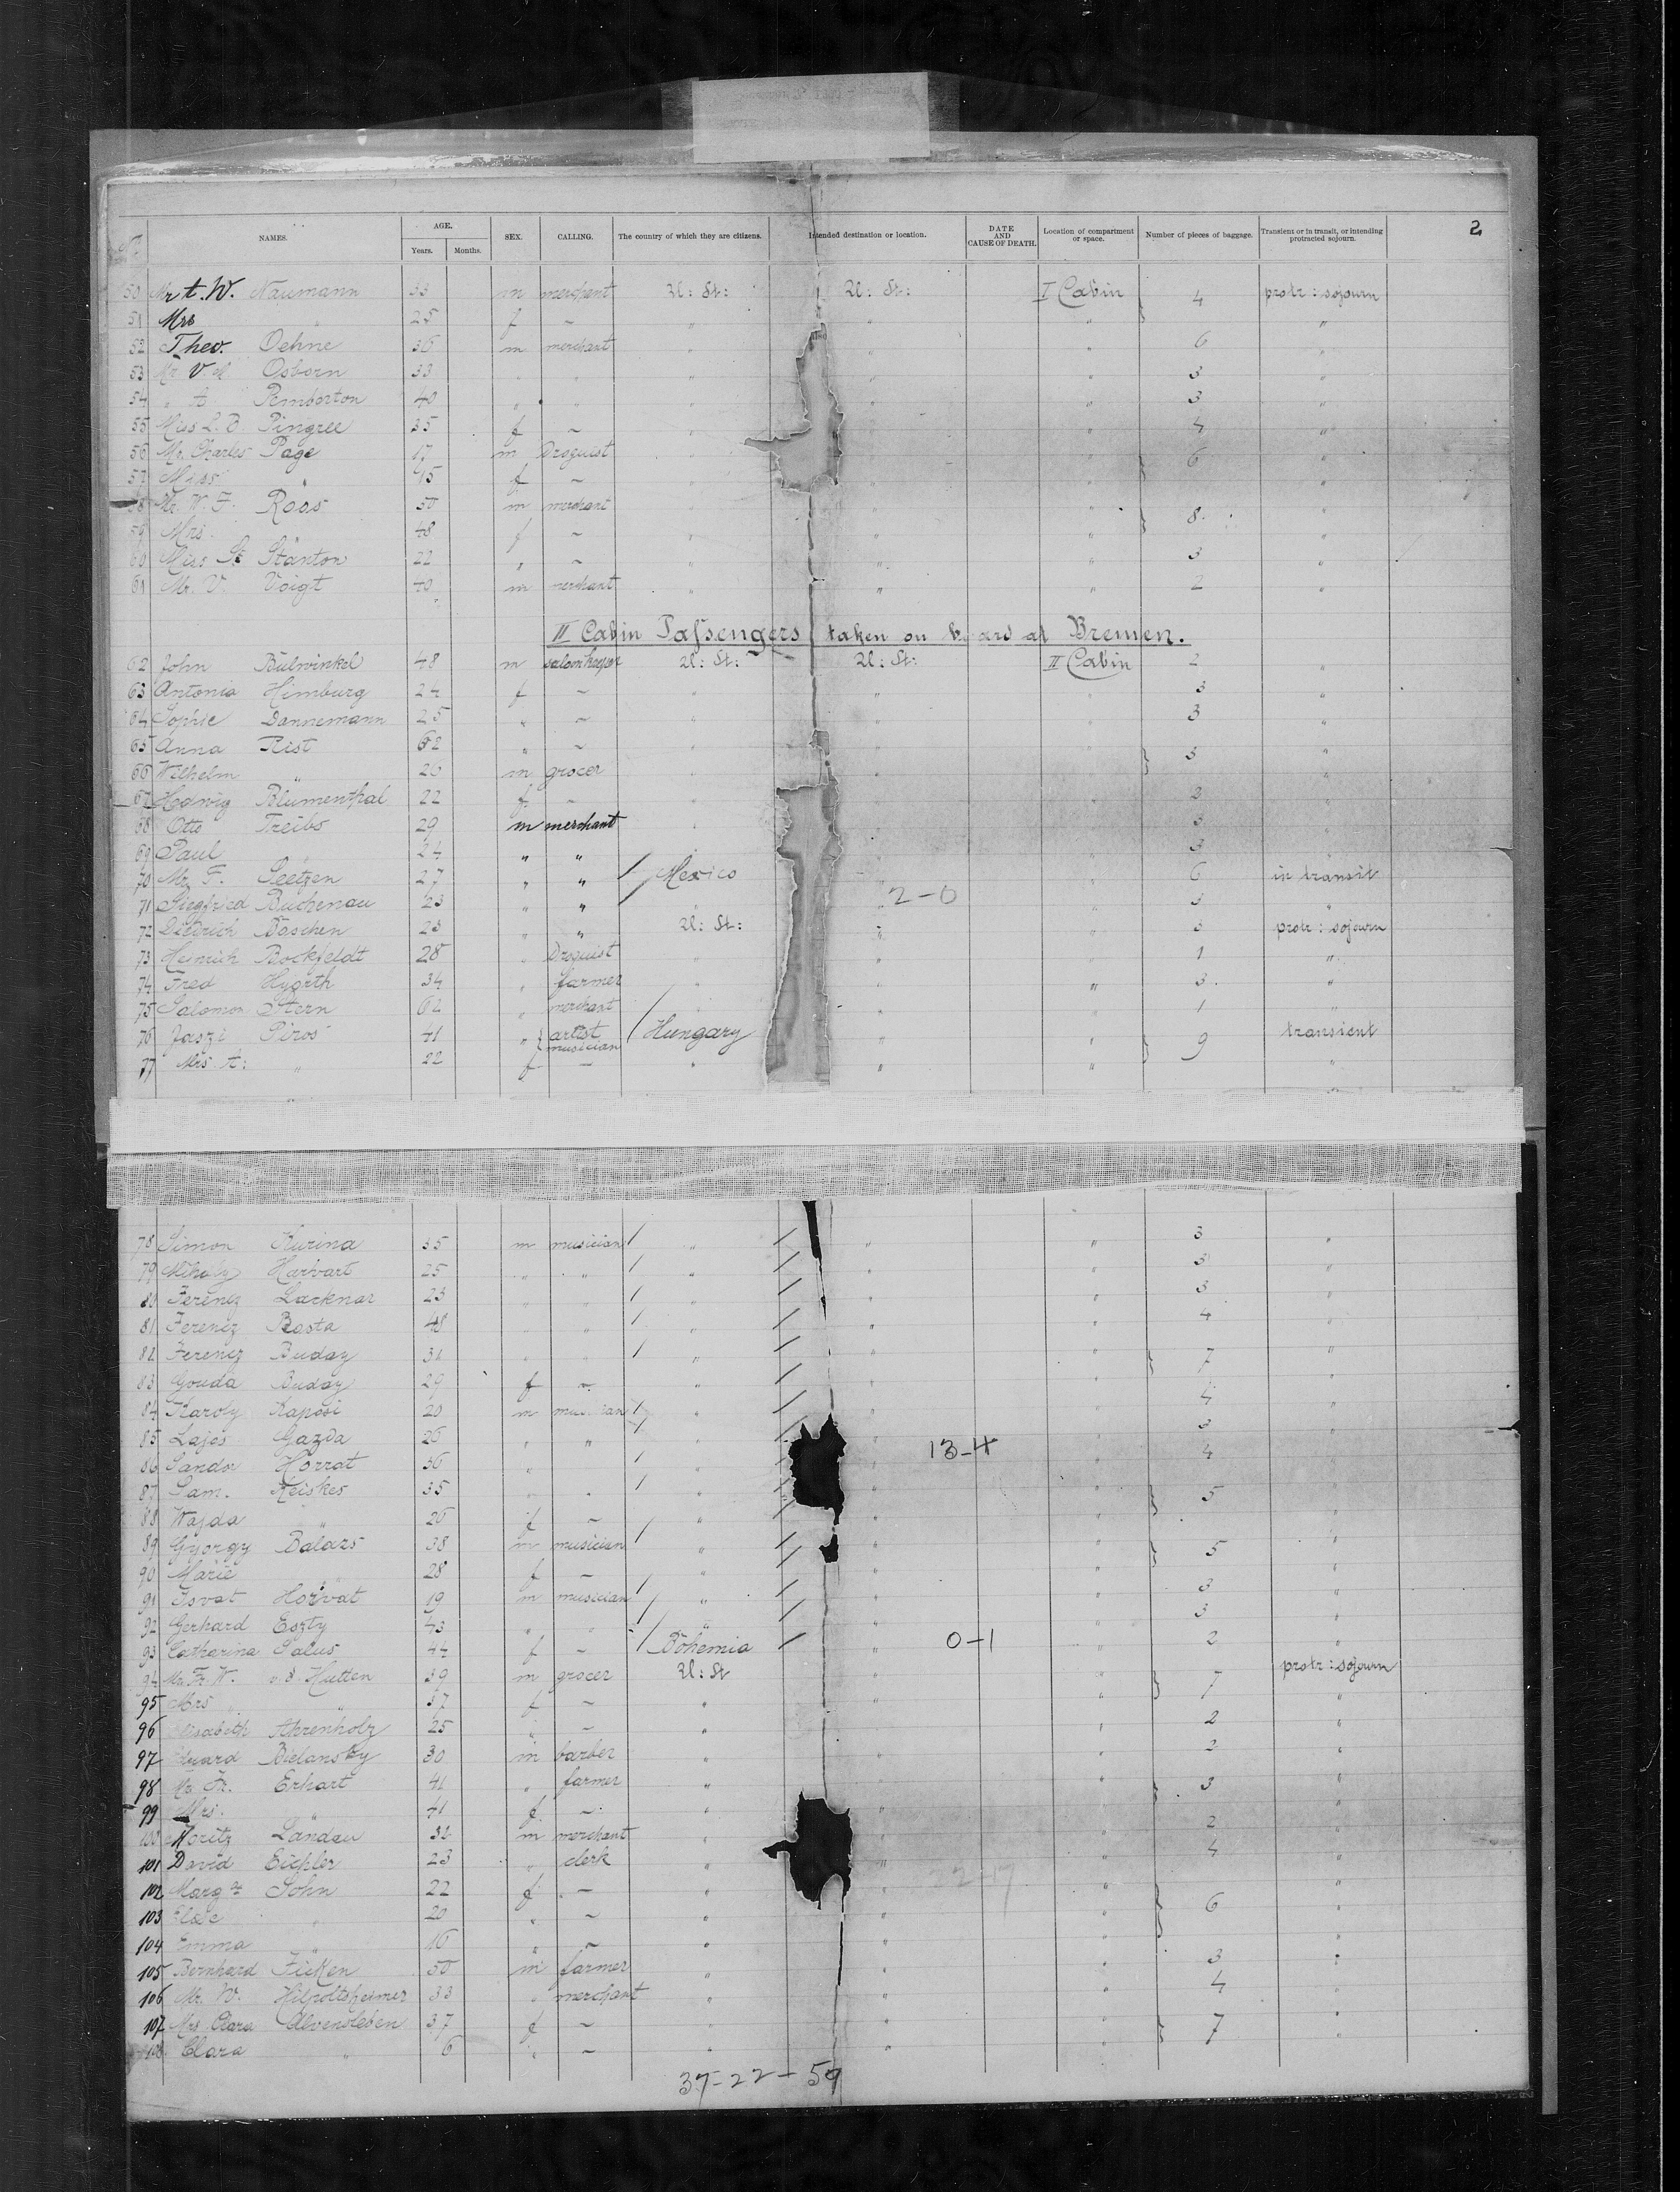 2
NAMES. AGE. Years. Months. SEX. CALLING. The country of which they are citizens. Intended destination or location. DATE AND CAUSE OF DEATH. Location of compartment or space. Number of pieces of baggage. Transient or in transit, or intending protracted sojourn.
50 Mr A. W. Naumann 33 m merchant U: St: U: St: I Cabin 4 protr: sojourn
51 Mrs " 25 f — " " " "
52 Theo. Oehne 36 m merchant " " " 6 "
53 Mr V. Osborn 33 " " " " " 3 "
54 " A Pemberton 40 " " " " " 3 "
55 Miss L. B. Pingree 35 f — " " " 4 "
56 Mr. Charles Page 17 m Droguist " " " 6 "
57 Miss " 45 f — " " " "
58 Mr. W. F. Roos 50 m merchant " " " 8 "
59 Mrs. " 48 f — " " " "
60 Miss St Stanton 22 " — " " " 3 "
61 Mr. V. Voigt 40 m merchant " " " 2 "
II Cabin Passengers taken on board at Bremen.
62 John Bulwinkel 48 m saloonkeeper U: St: U: St: II Cabin 2 "
63 Antonia Himburg 24 f — " " " 3 "
64 Sophie Dannemann 25 " — " " " 3 "
65 Anna Rist 62 " — " " " 3 "
66 Wilhelm " 20 m grocer " " " "
67 Hedwig Blumenthal 22 f — " " " 2 "
68 Otto Treibs 29 m merchant " " " 3 "
69 Paul " 24 " " " " " 3 "
70 Mr. F. Seetzen 27 " " / Mexico " " 6 in transit
71 Siegfried Buchenau 23 " " " " 2-0 " 3 "
72 Diedrich Baschen 23 " " U: St: " " 3 protr: sojourn
73 Heinrich Bockfeldt 28 " Droguist " " " 1 "
74 Fred Hygrth 34 " farmer " " " 3 "
75 Salomon Stern 62 " merchant " " " 1 "
76 Jaszi Piros 41 " artist musician / Hungary " " 9 transient
77 Mrs. A: " 22 f — " " " "
78 Simon Kurina 35 m musician / " / " " 3 "
79 Mihaly Harvart 25 " " / " / " " 3 "
80 Ferencz Lacknar 23 " " / " / " " 3 "
81 Ferencz Basta 48 " " / " / " " 4 "
82 Ferencz Buday 31 " " / " / " " 7 "
83 Gouda Buday 29 f " " / " " "
84 Karoly Kaposi 20 m musician / " / " " 4 "
85 Lajos Gazda 26 " " / " / " 13-4 " 3 "
86 Sandor Horrat 36 " " / " / " " 4 "
87 Sam. Keiskes 35 " " / " / " " 5 "
88 Wajda " 26 f — " / " " "
89 György Balazs 38 m musician / " / " " 5 "
90 Marie " 28 f — " / " " "
91 Isvat Horvat 19 m musician / " / " " 3 "
92 Gerhard Eszty 43 " " / " / " " 3 "
93 Catharina Salus 44 f — / Bohemia / " 0-1 " 2 "
94 Mr. Fr. W. v. d. Hutten 39 m grocer U: St " " 7 protr: sojourn
95 Mrs " " 37 f — " " " "
96 Elisabeth Ahrenholz 25 " — " " " 2 "
97 Eduard Bielansky 30 m barber " " " 2 "
98 Mr. Fr. Erhart 41 " farmer " " " 3 "
99 Mrs. " 41 f — " " " "
100 Moritz Landau 32 m merchant " " " 2 "
101 David Eichler 23 " clerk " " " 4 "
102 Marg. Sohn 22 f — " " " 6 "
103 Else " 20 " — " " " "
104 Emma " 16 " — " " " "
105 Bernhard Ficken 50 m farmer " " " 3 "
106 Mr. W. Hilpoltsheimer 33 " merchant " " " 4 "
107 Mrs. Clara Alvensleben 37 f — " " " 7 "
108 Clara " 6 " — " " " "
37-22-59